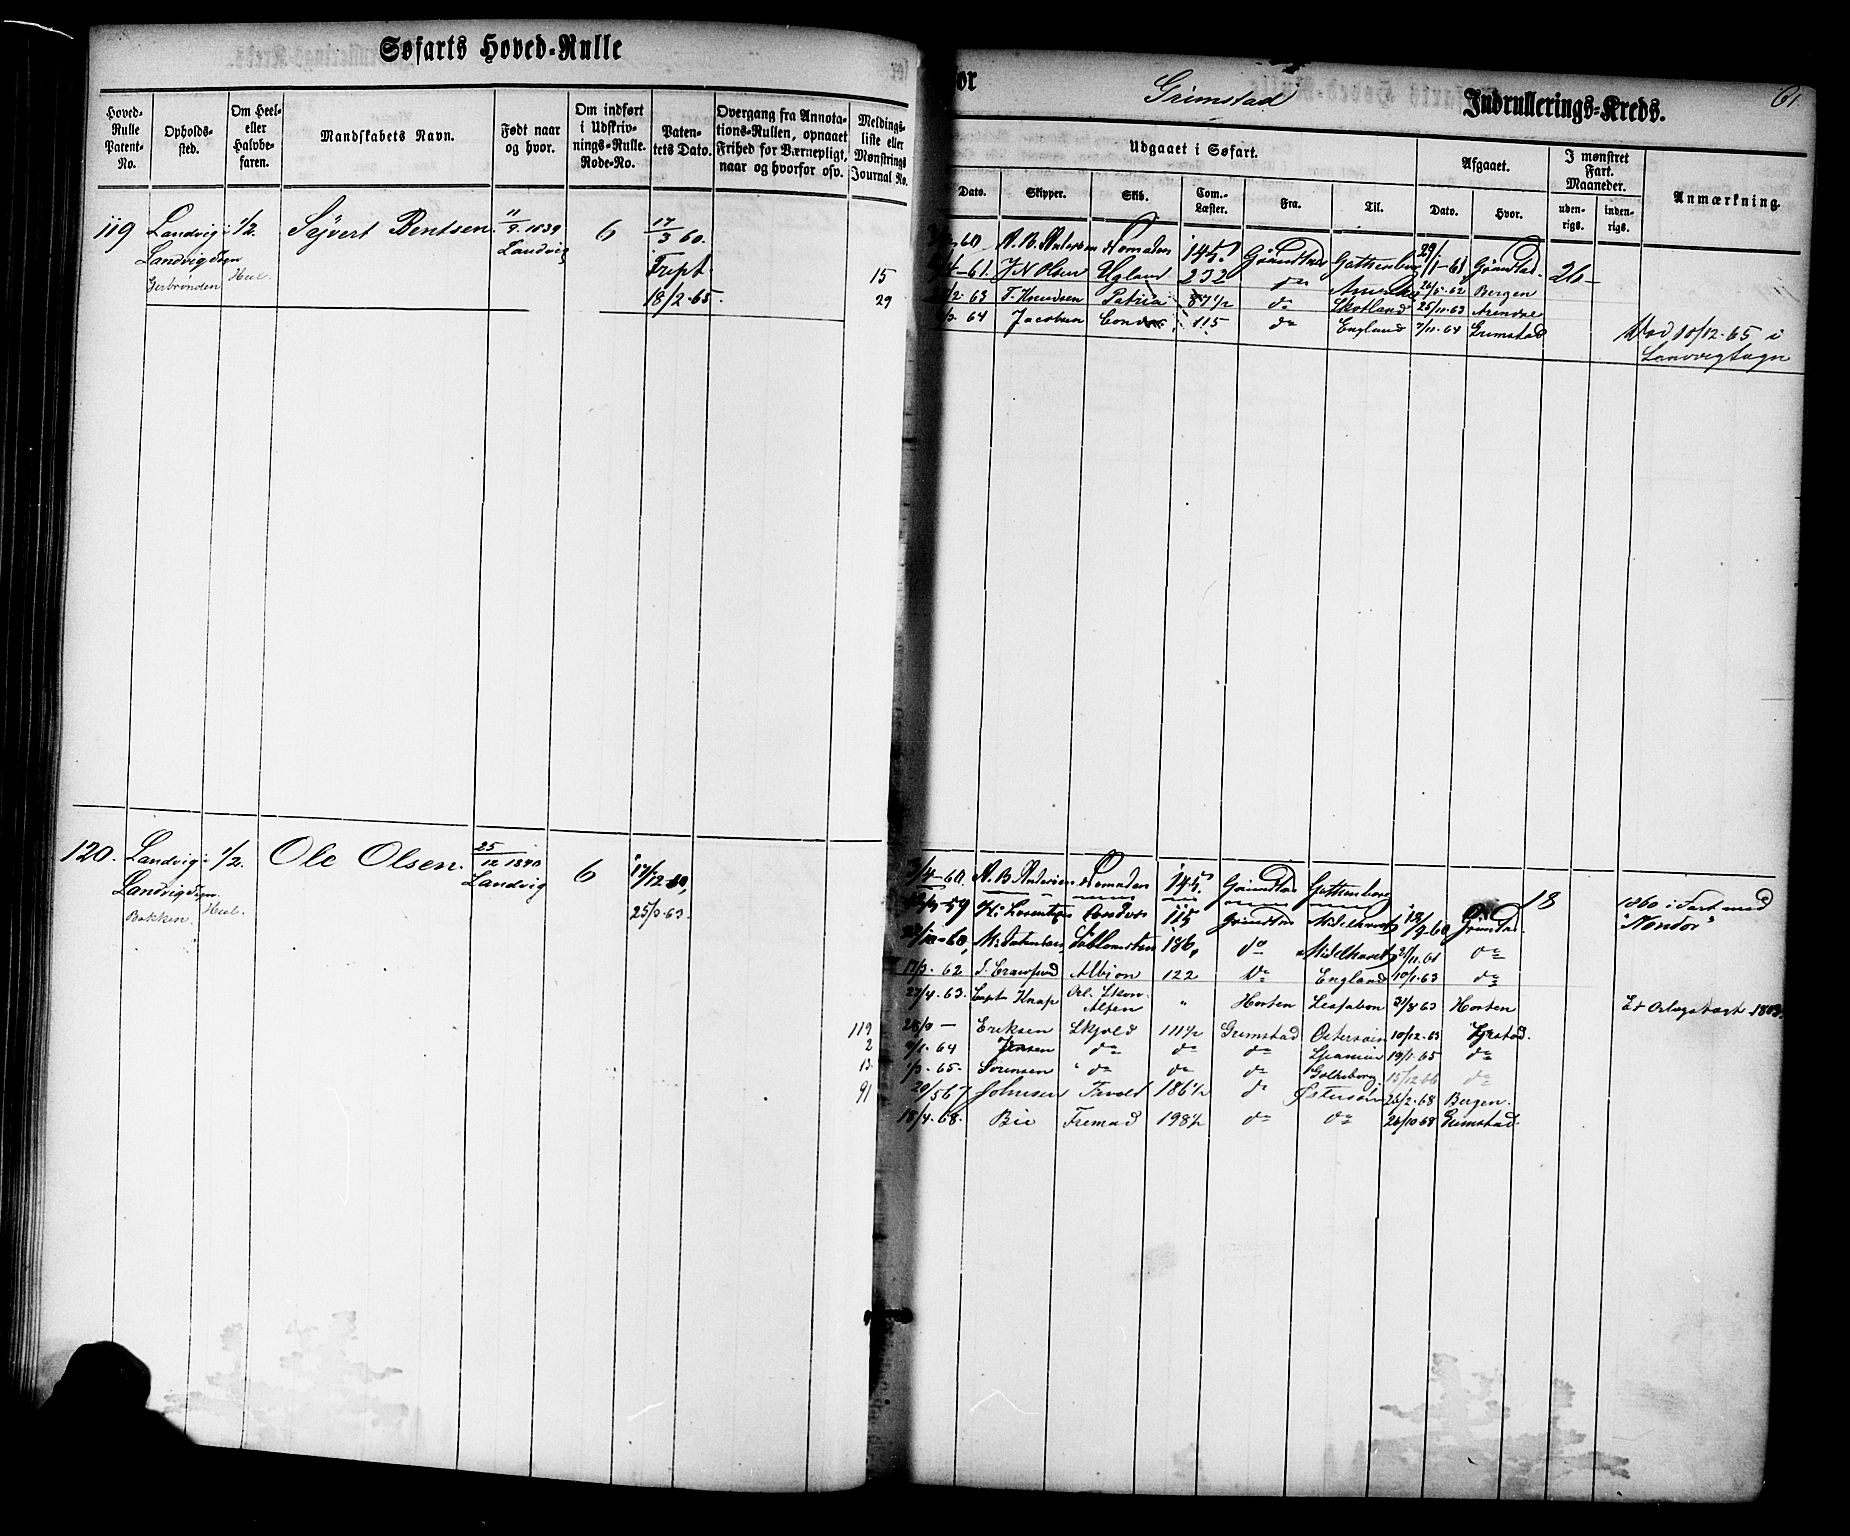 Søfarts Hoved-Rulle
for Grimstad Indrullerings-Kreds.
61.
Hoved-Rulle Patent-No.
Opholds-sted.
Om Heel- eller Halvbe-faren.
Mandskabets Navn.
Født naar og hvor.
Om indført i Udskriv-nings-Rulle. Rode-No.
Paten-tets Dato.
Overgang fra Annota-tions-Rullen, opnaaet Frihed for Værnepligt, naar og hvorfor osv.
Meldings-liste eller Mønstrings Journal No.
Udgaaet i Søfart.
Afgaaet.
I mønstret Fart. Maaneder.
Anmærkning.
Dato.
Skipper.
Skib.
Com.-Læster.
Fra.
Til.
Dato.
Hvor.
uden-rigs.
inden-rigs.
119 Landvig 1/2. Sejvert Bentsen 11/9. 1839 Landvig 6 17/3 60.
Landvig Sogn Heel.
Fript
18/2-65.
15
29
60 A. B. Andersen Nomaden 145. Grimstad Gothenborg 29/1-61 Grimstad. 26
-61. J N Olsen Ugland 232 do Amerika 26/5-62 Bergen
/2-63 T. Knudsen Patria 87 1/2 do Skotland 25/11-63 Arendal
64 Jacobsen Condor 115 do England 7/11-64 Grimstad
Død 10/12-65 i
Landvig Sogn
120. Landvig 1/2. Ole Olsen. 25/12 1840 Landvig 6 17/12 60,
Landvig Sogn. Heel.
Bakken.
25/3-63.
3/4-60. A. B. Andersen Nomaden 145. Grimstad Gothenborg
59 Condor 115 Grimstad Middelhavet 18/9-60 Grimstad. 18
1860 i Fart med
"Kondor"
60, 186, do Middelhavet 21/11-61 do
17/3-62 S. Crawfurd Albion 122 do England 10/1-63 do
27/4-63. Capt Knap Alfen " Horten Lissabon 31/8 63 Horten
Et Orlogstogt 1863.
119 28/9 — Eriksen Skjold 111 1/2 Grimstad Østersøen 10/12-63 Grstad.
2 9/1-64 Jensen do do do Spanien 19/1-65 do
13. 1/3-65. Sørensen do do do Gotheborg. 15/12 66 do
91 20/5 67 Johnsen Trvolt 186 1/2 do Østersøen 26/2-68 Bergen.
18/4-68. Bie Fremad 198 1/2 do do 26/10 68 Grimstad.